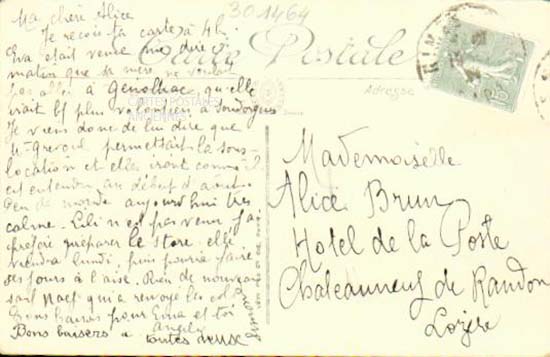 301464
Ma chère Alice
Je reçois ta carte à 4h
Eva était venue me dire ce
matin que sa mère ne voulait
pas aller à Génolhac qu'elle
irait bf plus volontiers à Soudorgues
Je viens donc de lui dire que
permettait la sous-
location et elles iront comme il
est entendu au début d'août
Peu de monde aujourd'hui très
calme. Lili n'est pas venu j'ai
préparer le store. elle
viendra lundi, puis pourra faire
ses jours à l'aise. Rien de nouveau
sauf qui a renvoyé les colis
Bons baisers pour et toi
Bons baisers à toutes deux
Angèle
Carte Postale
CARTES POSTALES
ANCIENNES
Adresse
NIMES
15
Mademoiselle
Alice Brun
Hotel de la Poste
Chateauneuf de Randon
Lozère